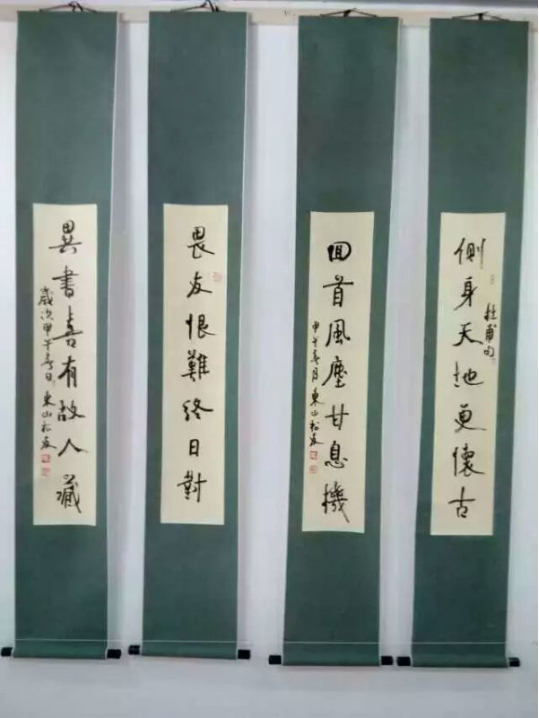 側身天地更懷古
杜甫句
回首風塵甘息機
甲午春月東山松友
畏友恨難終日對
異書喜有故人藏
歲次甲午春日東山松友